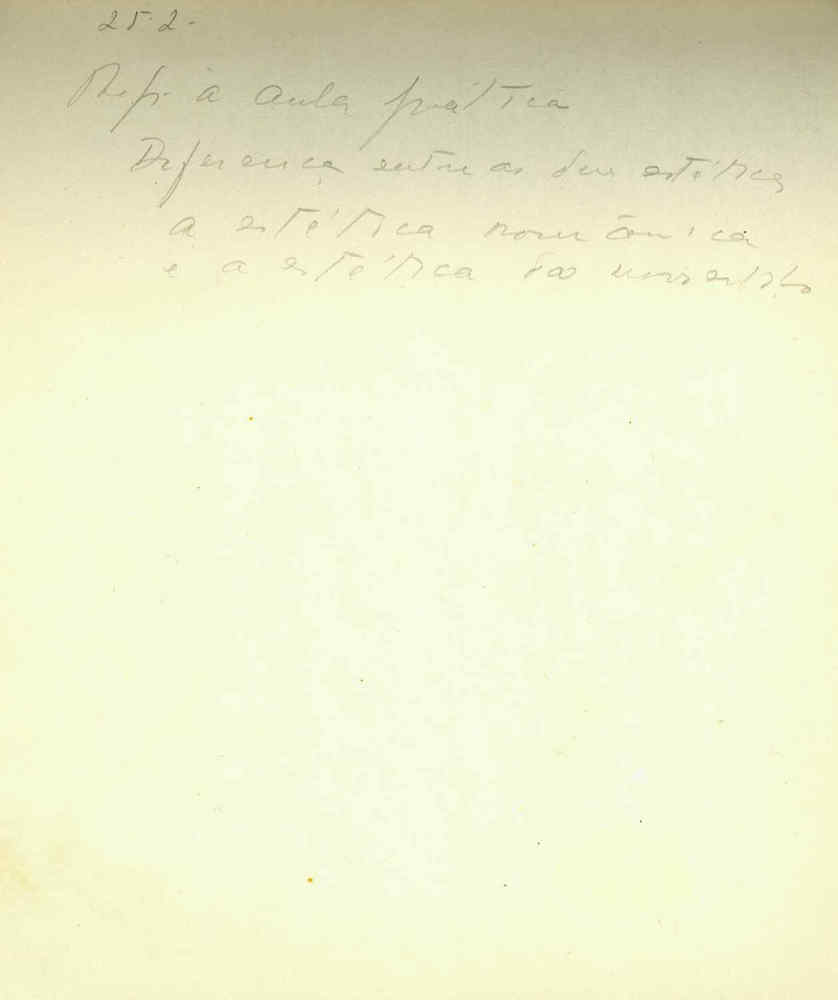 25.2.
Ref. à aula prática
Diferença entre as duas estéticas
a estética românica
e a estética dos